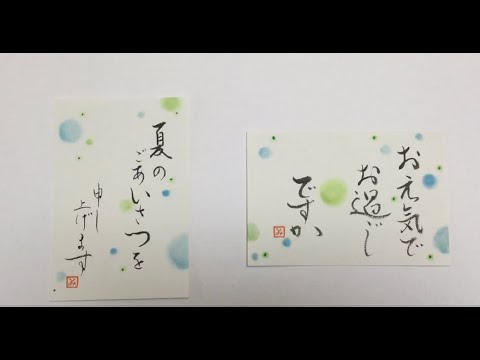 夏の
ごあいさつを
申し
上げます
お元気で
お過ごし
ですか